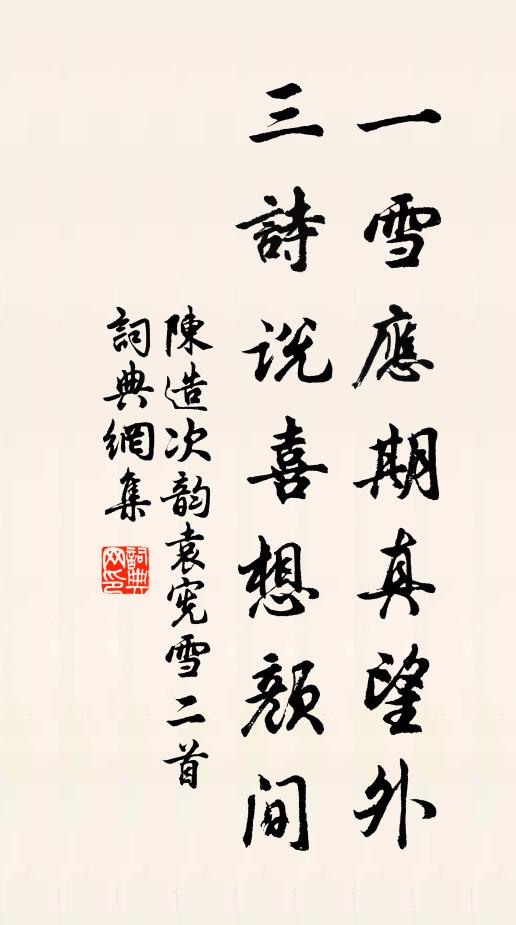 一雪應期真望外
三詩说喜想顔间
陳造次韵袁宪雪二首
詞典網集
詞典網印